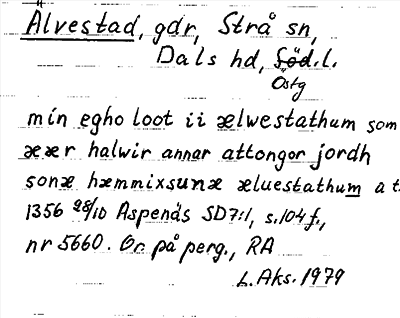 Älvestad, gdr, Strå sn,
Dals hd, Söd. l.
Östg
min egho loot ii ælwestathum som
ææer halwir annar attongor jordh
sonæ hæmmixsunæ æluestathum a t.
1356 28/10 Aspenäs SD7:1, s.104f.,
nr 5660. Or. på perg., RA
L. Aks. 1979